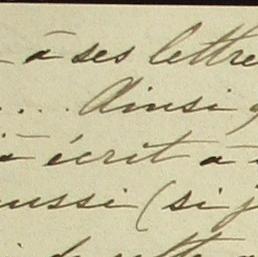 à ses lettre
... Ainsi q
à écrit à
aussi (si j